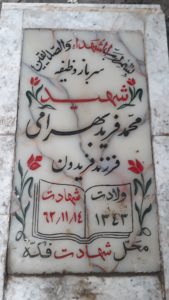 اللهم احشرنا مع الشهداء والصدیقین
سرباز وظیفه
شهید
محمد فرید بهرامی
فرزند فریدون
ولادت
۱۳۴۲
شهادت
۶۲/۱۱/۱۴
محل شهادت فکه